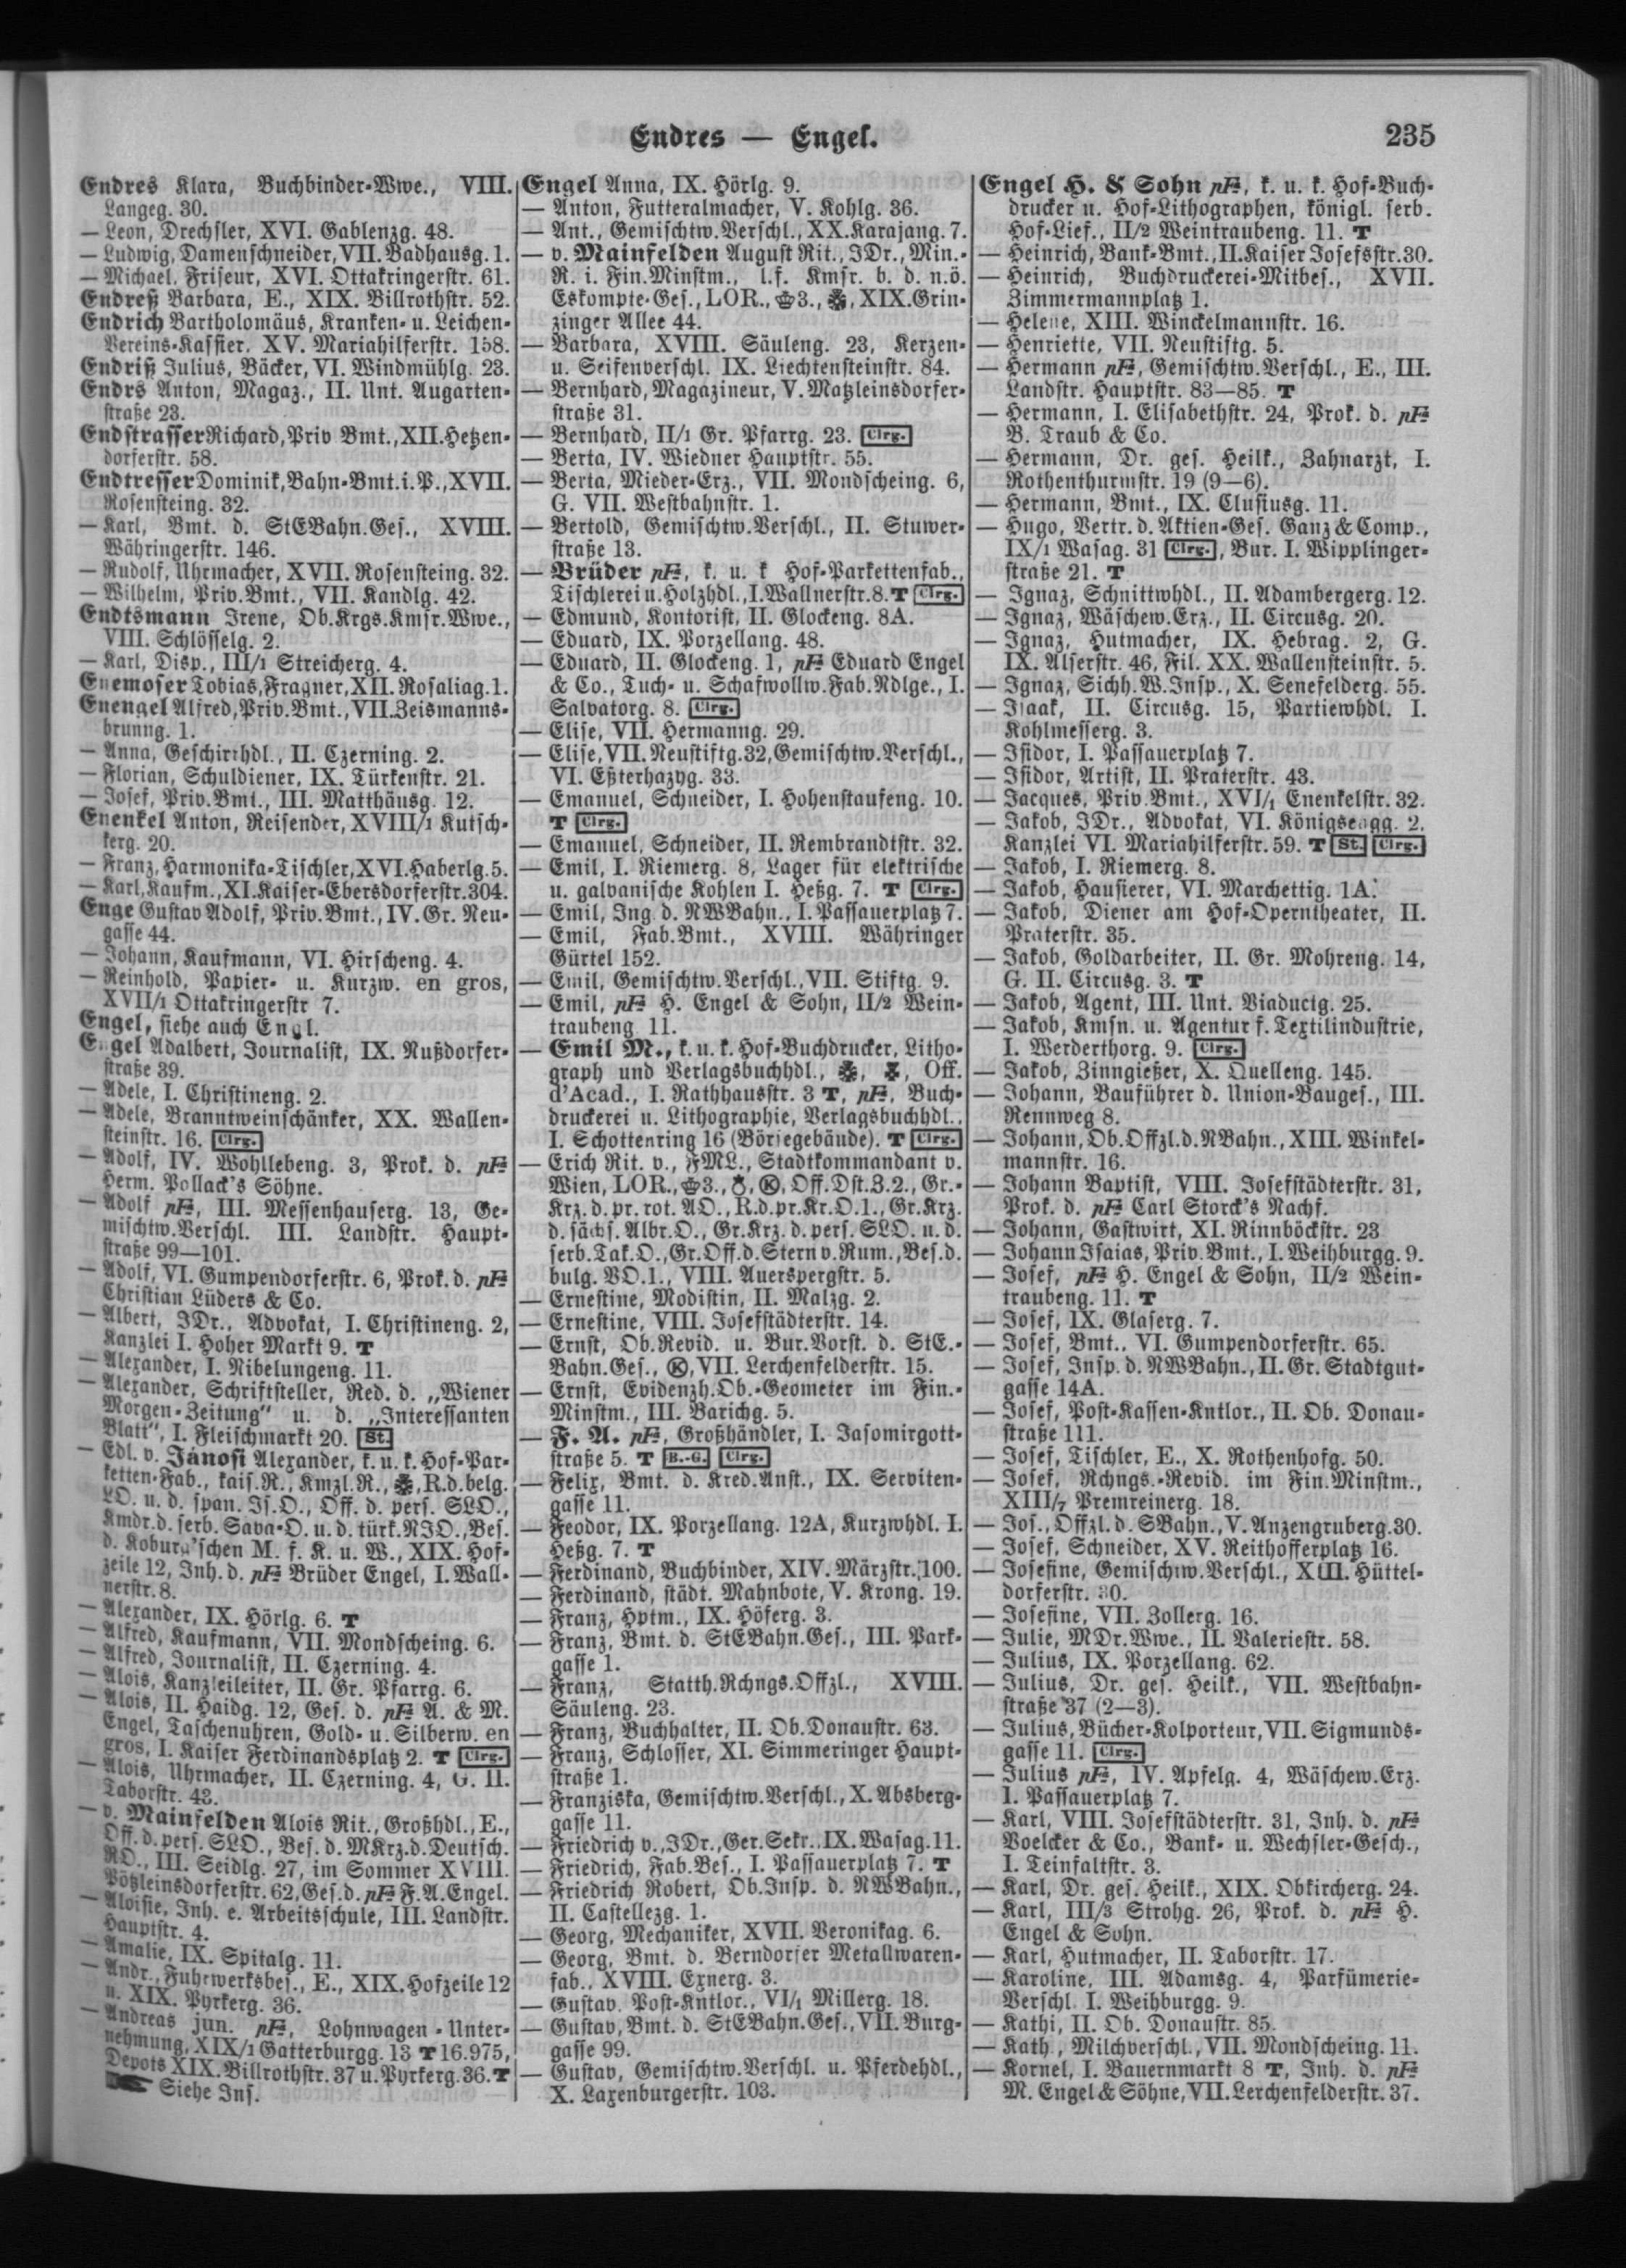 Endres — Engel.
235
Endres Klara, Buchbinder-Wwe., VIII.
Langeg. 30.
— Leon, Drechsler, XVI. Gablenzg. 48.
— Ludwig, Damenschneider, VII. Badhausg. 1.
— Michael, Friseur, XVI. Ottakringerstr. 61.
Endreß Barbara, E., XIX. Billrothstr. 52.
Endrich Bartholomäus, Kranken- u. Leichen-
Vereins-Kassier, XV. Mariahilferstr. 158.
Endriß Julius, Bäcker, VI. Windmühlg. 23.
Endrs Anton, Magaz., II. Unt. Augarten-
straße 23.
Endstrasser Richard, Priv Bmt., XII. Hetzen-
dorferstr. 58.
Endtresser Dominik, Bahn-Bmt. i. P., XVII.
Rosensteing. 32.
— Karl, Bmt. d. StEBahn.Ges., XVIII.
Währingerstr. 146.
— Rudolf, Uhrmacher, XVII. Rosensteing. 32.
— Wilhelm, Priv.Bmt., VII. Kandlg. 42.
Endtsmann Irene, Ob.Krgs.Kmsr.Wwe.,
VIII. Schlösselg. 2.
— Karl, Disp., III/1 Streicherg. 4.
Enemoser Tobias, Fragner, XII. Rosaliag. 1.
Enengel Alfred, Priv.Bmt., VII. Zeismanns-
brunng. 1.
— Anna, Geschirrhdl., II. Czerning. 2.
— Florian, Schuldiener, IX. Türkenstr. 21.
— Josef, Priv.Bmt., III. Matthäusg. 12.
Enenkel Anton, Reisender, XVIII/1 Kutsch-
kerg. 20.
— Franz, Harmonika-Tischler, XVI. Haberlg. 5.
— Karl, Kaufm., XI. Kaiser-Ebersdorferstr. 304.
Enge Gustav Adolf, Priv.Bmt., IV. Gr. Neu-
gasse 44.
— Johann, Kaufmann, VI. Hirscheng. 4.
— Reinhold, Papier- u. Kurzw. en gros,
XVII/1 Ottakringerstr 7.
Engel, siehe auch Engl.
Engel Adalbert, Journalist, IX. Nußdorfer-
straße 39.
— Adele, I. Christineng. 2.
— Adele, Branntweinschänker, XX. Wallen-
steinstr. 16. Clrg.
— Adolf, IV. Wohllebeng. 3, Prok. d. pFa
Herm. Pollack's Söhne.
— Adolf pFa, III. Messenhauserg. 13, Ge-
mischtw.Verschl. III. Landstr. Haupt-
straße 99—101.
— Adolf, VI. Gumpendorferstr. 6, Prok. d. pFa
Christian Lüders & Co.
— Albert, JDr., Advokat, I. Christineng. 2,
Kanzlei I. Hoher Markt 9. T
— Alexander, I. Nibelungeng. 11.
— Alexander, Schriftsteller, Red. d. „Wiener
Morgen-Zeitung" u. d. „Interessanten
Blatt", I. Fleischmarkt 20. St.
— Edl. v. Jánosi Alexander, k. u. k. Hof-Par-
ketten-Fab., kais.R., Kmzl.R., R.d.belg.
LO. u. d. span. Is.O., Off. d. pers. SLO.,
Kmdr.d. serb. Sava-O. u. d. türk. NJO., Bes.
d. Koburg'schen M. f. K. u. W., XIX. Hof-
zeile 12, Inh. d. pFa Brüder Engel, I. Wall-
nerstr. 8.
— Alexander, IX. Hörlg. 6. T
— Alfred, Kaufmann, VII. Mondscheing. 6.
— Alfred, Journalist, II. Czerning. 4.
— Alois, Kanzleileiter, II. Gr. Pfarrg. 6.
— Alois, II. Haidg. 12, Ges. d. pFa A. & M.
Engel, Taschenuhren, Gold- u. Silberw. en
gros, I. Kaiser Ferdinandsplatz 2. T Clrg.
— Alois, Uhrmacher, II. Czerning. 4, G. II.
Taborstr. 43.
— v. Mainfelden Alois Rit., Großhdl., E.,
Off. d. pers. SLO., Bes. d. MKrz.d.Deutsch.
RO., III. Seidlg. 27, im Sommer XVIII.
Pötzleinsdorferstr. 62, Ges. d. pFa F. A. Engel.
— Aloisie, Inh. e. Arbeitsschule, III. Landstr.
Hauptstr. 4.
— Amalie, IX. Spitalg. 11.
— Andr., Fuhrwerksbes., E., XIX. Hofzeile 12
u. XIX. Pyrkerg. 36.
— Andreas jun. pFa, Lohnwagen-Unter-
nehmung, XIX/1 Gatterburgg. 13 T 16.975,
Depots XIX. Billrothstr. 37 u. Pyrkerg. 36. T
Siehe Ins.
Engel Anna, IX. Hörlg. 9.
— Anton, Futteralmacher, V. Kohlg. 36.
— Ant., Gemischtw.Verschl., XX. Karajang. 7.
— v. Mainfelden August Rit., JDr., Min.-
R. i. Fin.Minstm., l.f. Kmsr. b. d. n.ö.
Eskompte-Ges., LOR., 3., XIX. Grin-
zinger Allee 44.
— Barbara, XVIII. Säuleng. 23, Kerzen-
u. Seifenverschl. IX. Liechtensteinstr. 84.
— Bernhard, Magazineur, V. Matzleinsdorfer-
straße 31.
— Bernhard, II/1 Gr. Pfarrg. 23. Clrg.
— Berta, IV. Wiedner Hauptstr. 55.
— Berta, Mieder-Erz., VII. Mondscheing. 6,
G. VII. Westbahnstr. 1.
— Bertold, Gemischtw.Verschl., II. Stuwer-
straße 13.
— Brüder pFa, k. u. k Hof-Parkettenfab.,
Tischlerei u. Holzhdl., I. Wallnerstr. 8. T Clrg.
— Edmund, Kontorist, II. Glockeng. 8A.
— Eduard, IX. Porzellang. 48.
— Eduard, II. Glockeng. 1, pFa Eduard Engel
& Co., Tuch- u. Schafwollw.Fab.Ndlge., I.
Salvatorg. 8. Clrg.
— Elise, VII. Hermanng. 29.
— Elise, VII. Neustiftg. 32, Gemischtw.Verschl.,
VI. Eßterhazyg. 33.
— Emanuel, Schneider, I. Hohenstaufeng. 10.
T Clrg.
— Emanuel, Schneider, II. Rembrandtstr. 32.
— Emil, I. Riemerg. 8, Lager für elektrische
u. galvanische Kohlen I. Heßg. 7. T Clrg.
— Emil, Ing. d. NWBahn., I. Passauerplatz 7.
— Emil, Fab.Bmt., XVIII. Währinger
Gürtel 152.
— Emil, Gemischtw.Verschl., VII. Stiftg. 9.
— Emil, pFa H. Engel & Sohn, II/2 Wein-
traubeng 11.
— Emil M., k. u. k. Hof-Buchdrucker, Litho-
graph und Verlagsbuchhdl., Off.
d'Acad., I. Rathhausstr. 3 T, pFa, Buch-
druckerei u. Lithographie, Verlagsbuchhdl.,
I. Schottenring 16 (Börsegebäude). T Clrg.
— Erich Rit. v., FML., Stadtkommandant v.
Wien, LOR., 3., Ⓚ, Off.Dst.Z.2., Gr.-
Krz. d. pr. rot. AO., R.d.pr.Kr.O.1., Gr.Krz.
d. sächs. Albr.O., Gr.Krz. d. pers. SLO. u. d.
serb.Tak.O., Gr.Off.d.Stern v. Rum., Bes.d.
bulg. VO.1., VIII. Auerspergstr. 5.
— Ernestine, Modistin, II. Malzg. 2.
— Ernestine, VIII. Josefstädterstr. 14.
— Ernst, Ob.Revid. u. Bur.Vorst. d. StE.-
Bahn.Ges., Ⓚ, VII. Lerchenfelderstr. 15.
— Ernst, Evidenzh.Ob.-Geometer im Fin.-
Minstm., III. Barichg. 5.
— F. A. pFa, Großhändler, I. Jasomirgott-
straße 5. T B.-G. Clrg.
— Felix, Bmt. d. Kred.Anst., IX. Serviten-
gasse 11.
— Feodor, IX. Porzellang. 12A, Kurzwhdl. I.
Heßg. 7. T
— Ferdinand, Buchbinder, XIV. Märzstr. 100.
— Ferdinand, städt. Mahnbote, V. Krong. 19.
— Franz, Hptm., IX. Höferg. 3.
— Franz, Bmt. d. StEBahn.Ges., III. Park-
gasse 1.
— Franz, Statth.Rchngs.Offzl., XVIII.
Säuleng. 23.
— Franz, Buchhalter, II. Ob. Donaustr. 63.
— Franz, Schlosser, XI. Simmeringer Haupt-
straße 1.
— Franziska, Gemischtw.Verschl., X. Absberg-
gasse 11.
— Friedrich v., JDr., Ger.Sekr., IX. Wasag. 11.
— Friedrich, Fab.Bes., I. Passauerplatz 7. T
— Friedrich Robert, Ob.Insp. d. NWBahn.,
II. Castellezg. 1.
— Georg, Mechaniker, XVII. Veronikag. 6.
— Georg, Bmt. d. Berndorfer Metallwaren-
fab., XVIII. Exnerg. 3.
— Gustav, Post-Kntlor., VI/1 Millerg. 18.
— Gustav, Bmt. d. StEBahn.Ges., VII. Burg-
gasse 99.
— Gustav, Gemischtw.Verschl. u. Pferdehdl.,
X. Laxenburgerstr. 103.
Engel H. & Sohn pFa, k. u. k. Hof-Buch-
drucker u. Hof-Lithographen, königl. serb.
Hof-Lief., II/2 Weintraubeng. 11. T
— Heinrich, Bank-Bmt., II. Kaiser Josefsstr. 30.
— Heinrich, Buchdruckerei-Mitbes., XVII.
Zimmermannplatz 1.
— Helene, XIII. Winckelmannstr. 16.
— Henriette, VII. Neustiftg. 5.
— Hermann pFa, Gemischtw.Verschl., E., III.
Landstr. Hauptstr. 83—85. T
— Hermann, I. Elisabethstr. 24, Prok. d. pFa
B. Traub & Co.
— Hermann, Dr. ges. Heilk., Zahnarzt, I.
Rothenthurmstr. 19 (9—6).
— Hermann, Bmt., IX. Clusiusg. 11.
— Hugo, Vertr. d. Aktien-Ges. Ganz & Comp.,
IX/1 Wasag. 31 Clrg., Bur. I. Wipplinger-
straße 21. T
— Ignaz, Schnittwhdl., II. Adambergerg. 12.
— Ignaz, Wäschew.Erz., II. Circusg. 20.
— Ignaz, Hutmacher, IX. Hebrag. 2, G.
IX. Alserstr. 46, Fil. XX. Wallensteinstr. 5.
— Ignaz, Sichh.W.Insp., X. Senefelderg. 55.
— Isaak, II. Circusg. 15, Partiewhdl. I.
Kohlmesserg. 3.
— Isidor, I. Passauerplatz 7.
— Isidor, Artist, II. Praterstr. 43.
— Jacques, Priv.Bmt., XVI/1 Enenkelstr. 32.
— Jakob, JDr., Advokat, VI. Königseggg. 2,
Kanzlei VI. Mariahilferstr. 59. T St. Clrg.
— Jakob, I. Riemerg. 8.
— Jakob, Hausierer, VI. Marchettig. 1A.
— Jakob, Diener am Hof-Operntheater, II.
Praterstr. 35.
— Jakob, Goldarbeiter, II. Gr. Mohreng. 14,
G. II. Circusg. 3. T
— Jakob, Agent, III. Unt. Viaductg. 25.
— Jakob, Kmsn. u. Agentur f. Textilindustrie,
I. Werderthorg. 9. Clrg.
— Jakob, Zinngießer, X. Quelleng. 145.
— Johann, Bauführer d. Union-Bauges., III.
Rennweg 8.
— Johann, Ob.Offzl.d.NBahn., XIII. Winkel-
mannstr. 16.
— Johann Baptist, VIII. Josefstädterstr. 31,
Prok. d. pFa Carl Storck's Nachf.
— Johann, Gastwirt, XI. Rinnböckstr. 23
— Johann Isaias, Priv.Bmt., I. Weihburgg. 9.
— Josef, pFa H. Engel & Sohn, II/2 Wein-
traubeng. 11. T
— Josef, IX. Glaserg. 7.
— Josef, Bmt., VI. Gumpendorferstr. 65.
— Josef, Insp. d. NWBahn., II. Gr. Stadtgut-
gasse 14A.
— Josef, Post-Kassen-Kntlor., II. Ob. Donau-
straße 111.
— Josef, Tischler, E., X. Rothenhofg. 50.
— Josef, Rchngs.-Revid. im Fin.Minstm.,
XIII/7 Premreinerg. 18.
— Jos., Offzl. d. SBahn., V. Anzengruberg. 30.
— Josef, Schneider, XV. Reithofferplatz 16.
— Josefine, Gemischtw.Verschl., XIII. Hüttel-
dorferstr. 30.
— Josefine, VII. Zollerg. 16.
— Julie, MDr.Wwe., II. Valeriestr. 58.
— Julius, IX. Porzellang. 62.
— Julius, Dr. ges. Heilk., VII. Westbahn-
straße 37 (2—3).
— Julius, Bücher-Kolporteur, VII. Sigmunds-
gasse 11. Clrg.
— Julius pFa, IV. Apfelg. 4, Wäschew.Erz.
I. Passauerplatz 7.
— Karl, VIII. Josefstädterstr. 31, Inh. d. pFa
Voelcker & Co., Bank- u. Wechsler-Gesch.,
I. Teinfaltstr. 3.
— Karl, Dr. ges. Heilk., XIX. Obkircherg. 24.
— Karl, III/3 Strohg. 26, Prok. d. pFa H.
Engel & Sohn.
— Karl, Hutmacher, II. Taborstr. 17.
— Karoline, III. Adamsg. 4, Parfümerie-
Verschl. I. Weihburgg. 9.
— Kathi, II. Ob. Donaustr. 85.
— Kath., Milchverschl., VII. Mondscheing. 11.
— Kornel, I. Bauernmarkt 8 T, Inh. d. pFa
M. Engel & Söhne, VII. Lerchenfelderstr. 37.